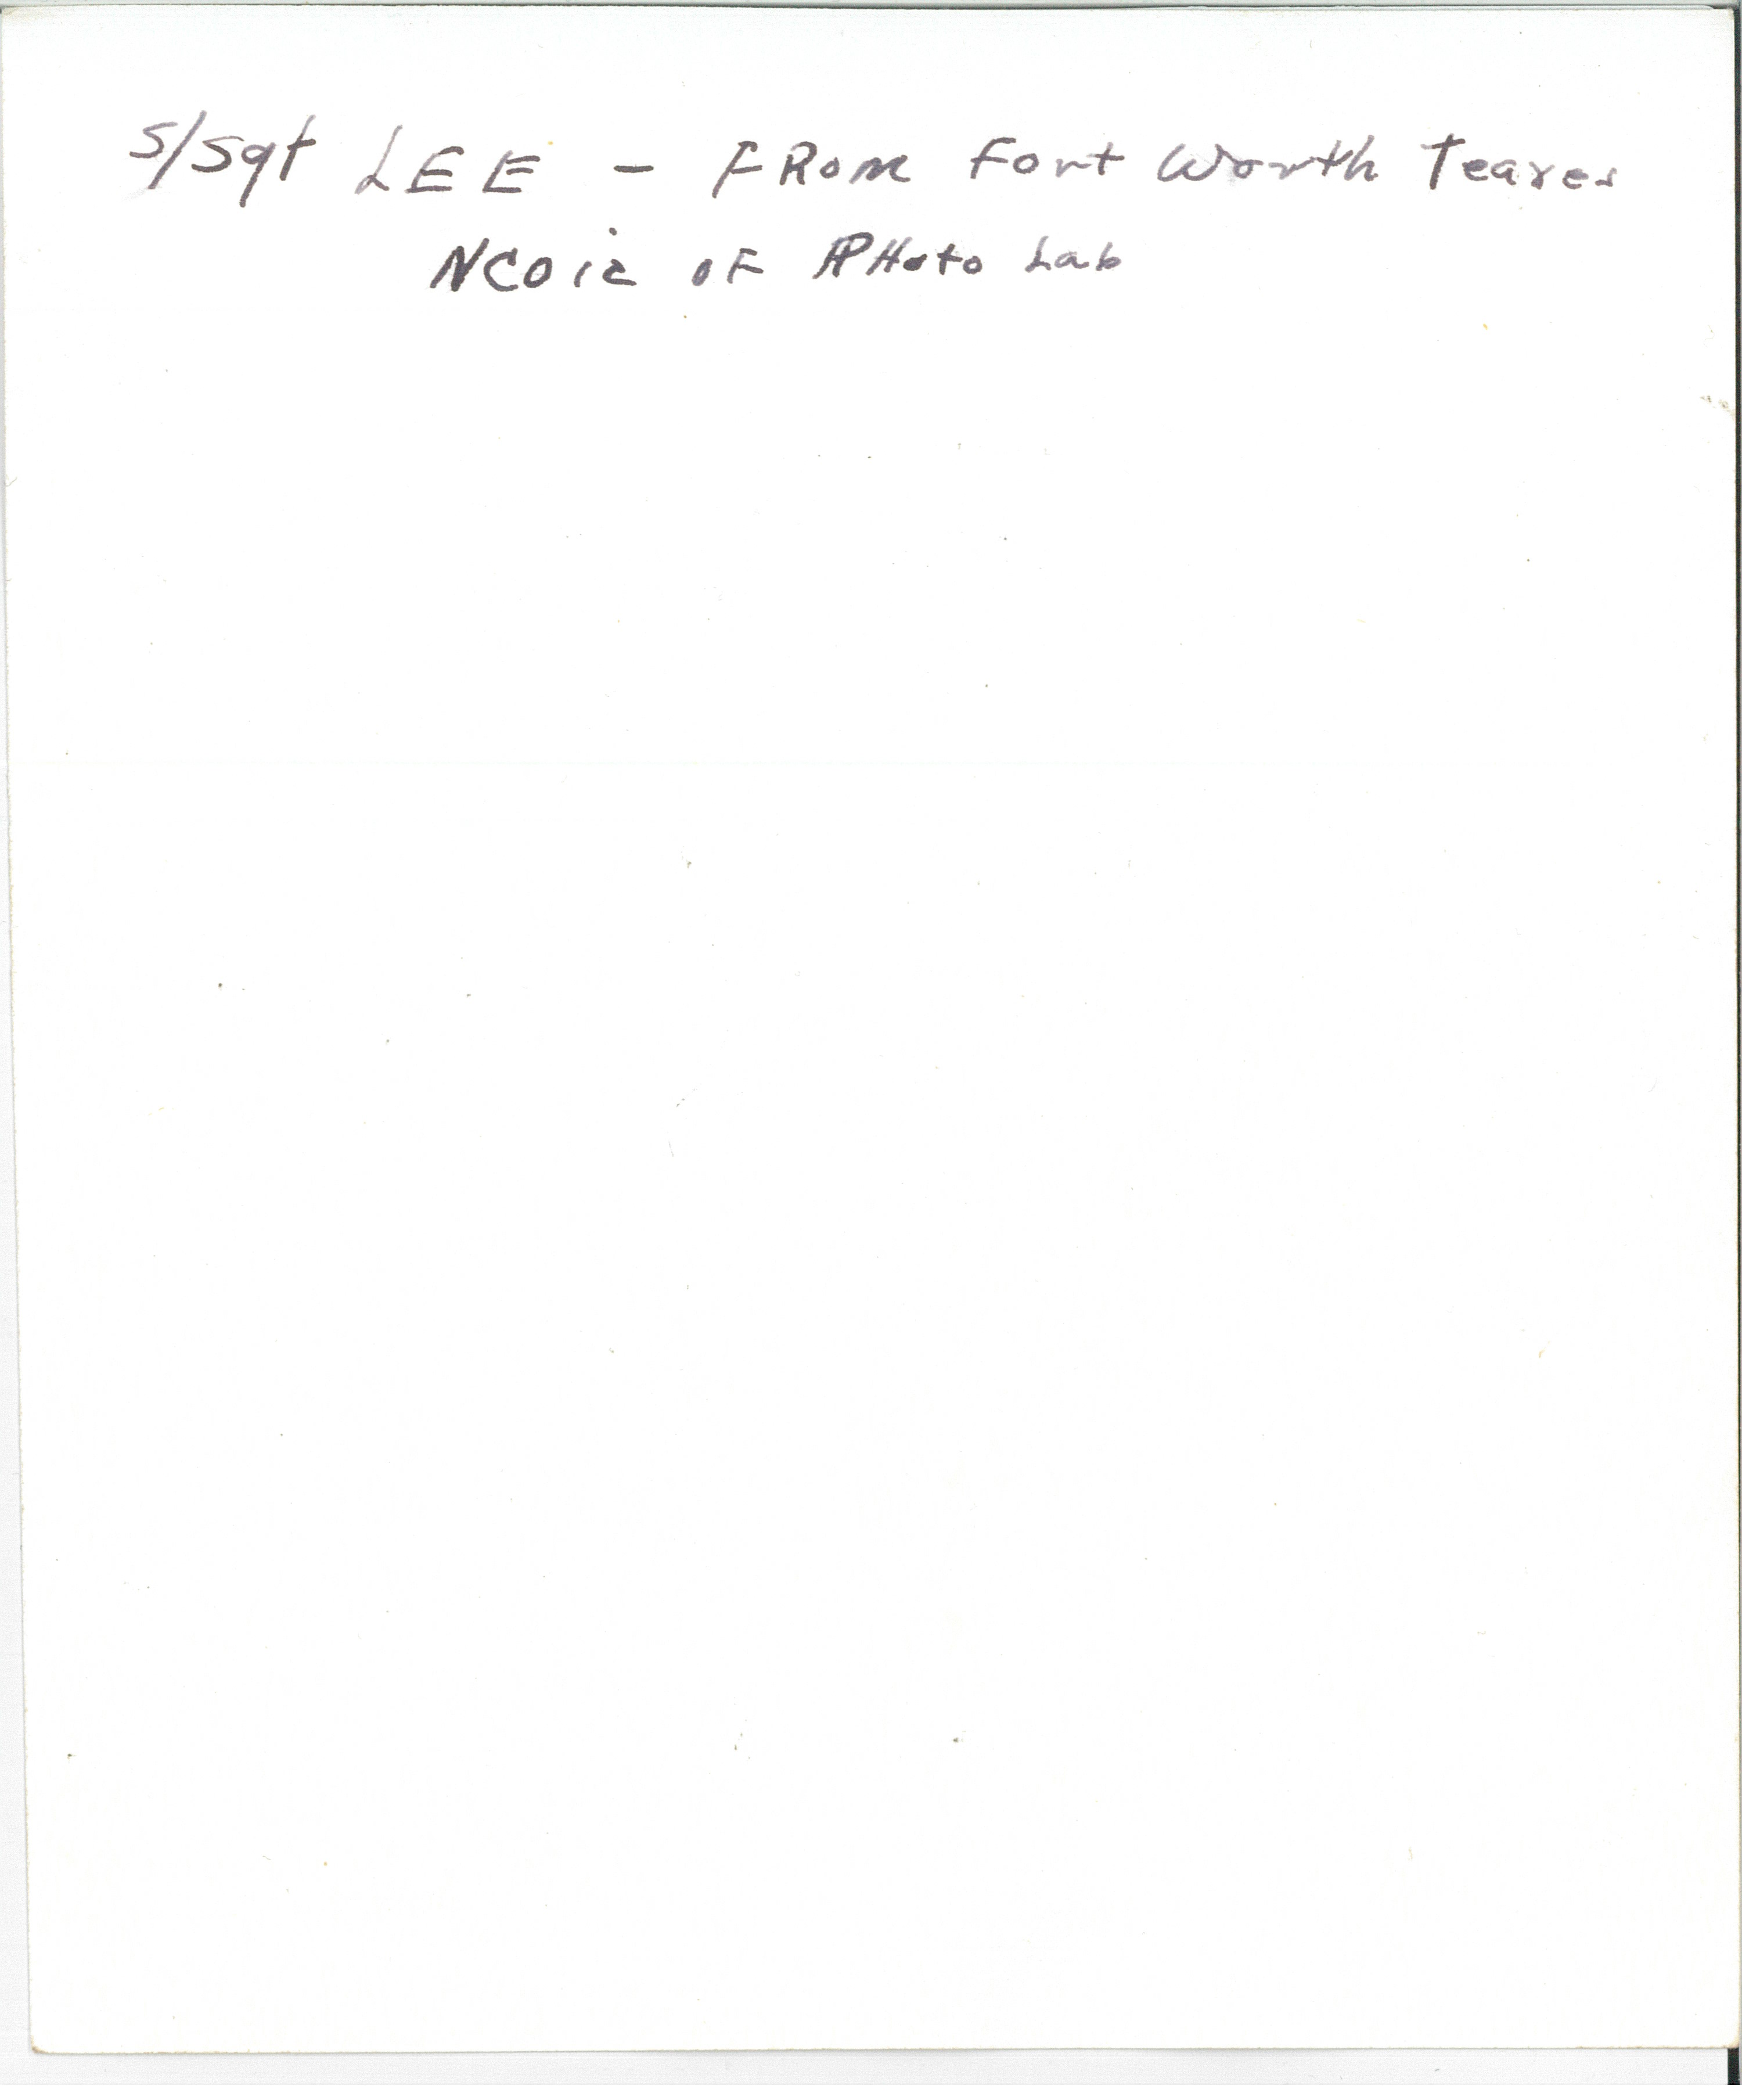 S/Sgt LEE - FROM Fort Worth Teaxes
NCOic OF PHoto Lab